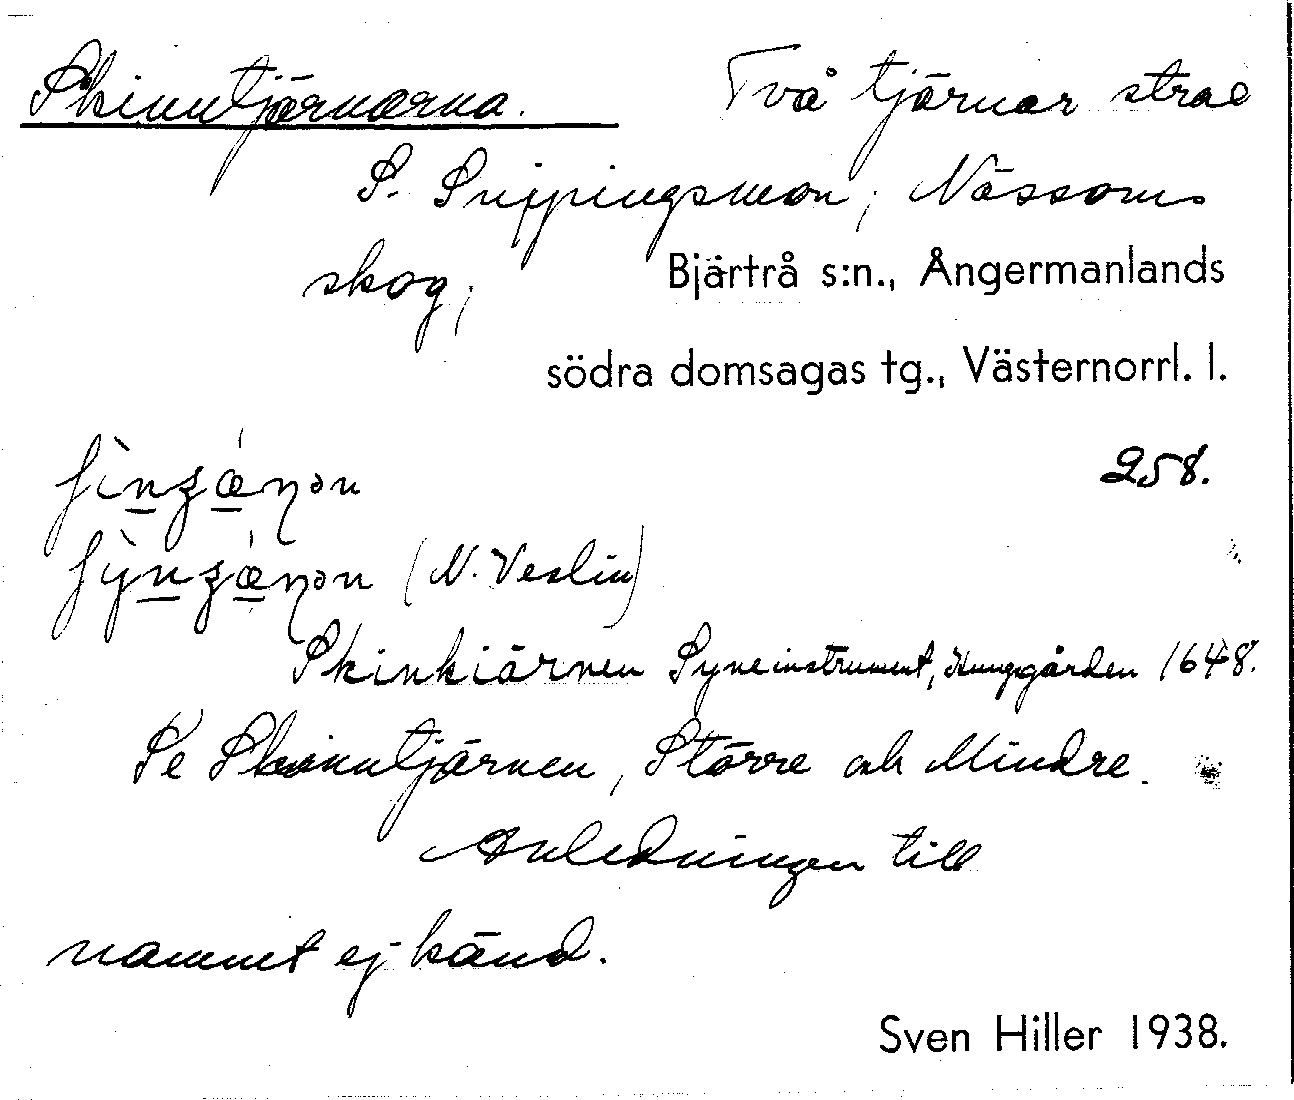 Skinntjärnarna. Två tjärnar strax
S. Snippingsmon, Nässoms
skog,
Bjärtrå s:n., Ångermanlands
södra domsagas tg., Västernorrl. l.
258.
(N. Veslin)
Skinkiärnen Syneinstrument, Kungsgården 1648.
Se Skinntjärnen, Större och Mindre.
Anledningen till
namnet ej känd.
Sven Hiller 1938.